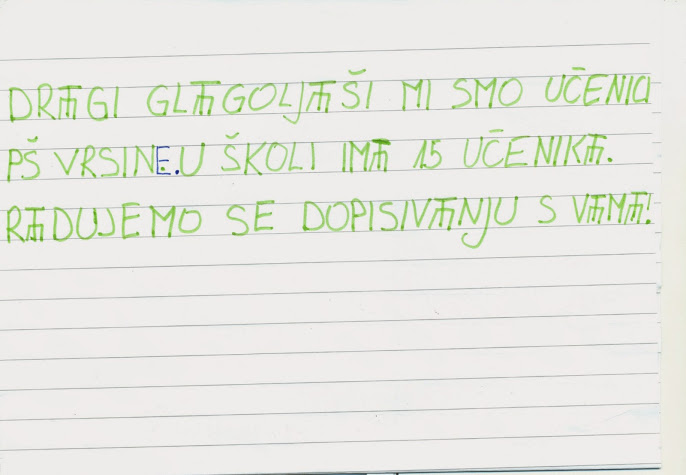 DRⰀGI GLⰀGOLJⰀŠI MI SMO UČENICI
PŠ VRSINE.U ŠKOLI IMⰀ 15 UČENIKⰀ.
RⰀDUJEMO SE DOPISIVⰀNJU S VⰀMⰀ!